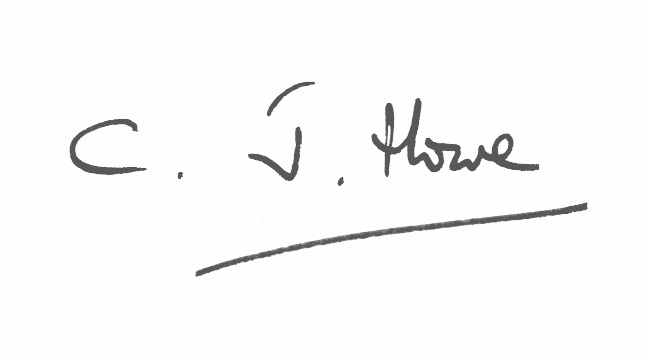 C. J. Howe